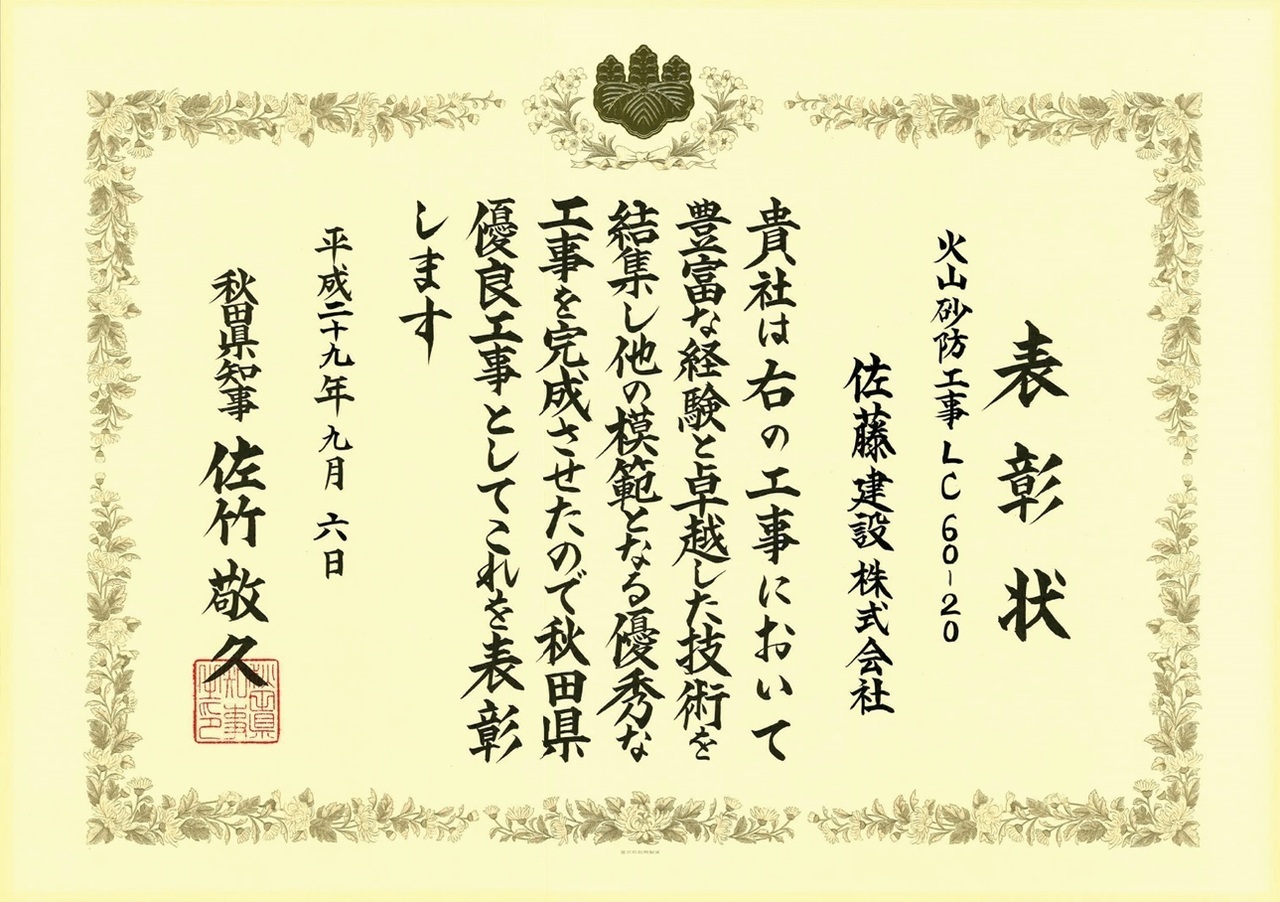 表彰状
火山砂防工事 LC60-20
佐藤建設株式会社
貴社は右の工事において
豊富な経験と卓越した技術を
結集し他の模範となる優秀な
工事を完成させたので秋田県
優良工事としてこれを表彰
します
平成二十九年 九月 六日
秋田県知事 佐竹敬久